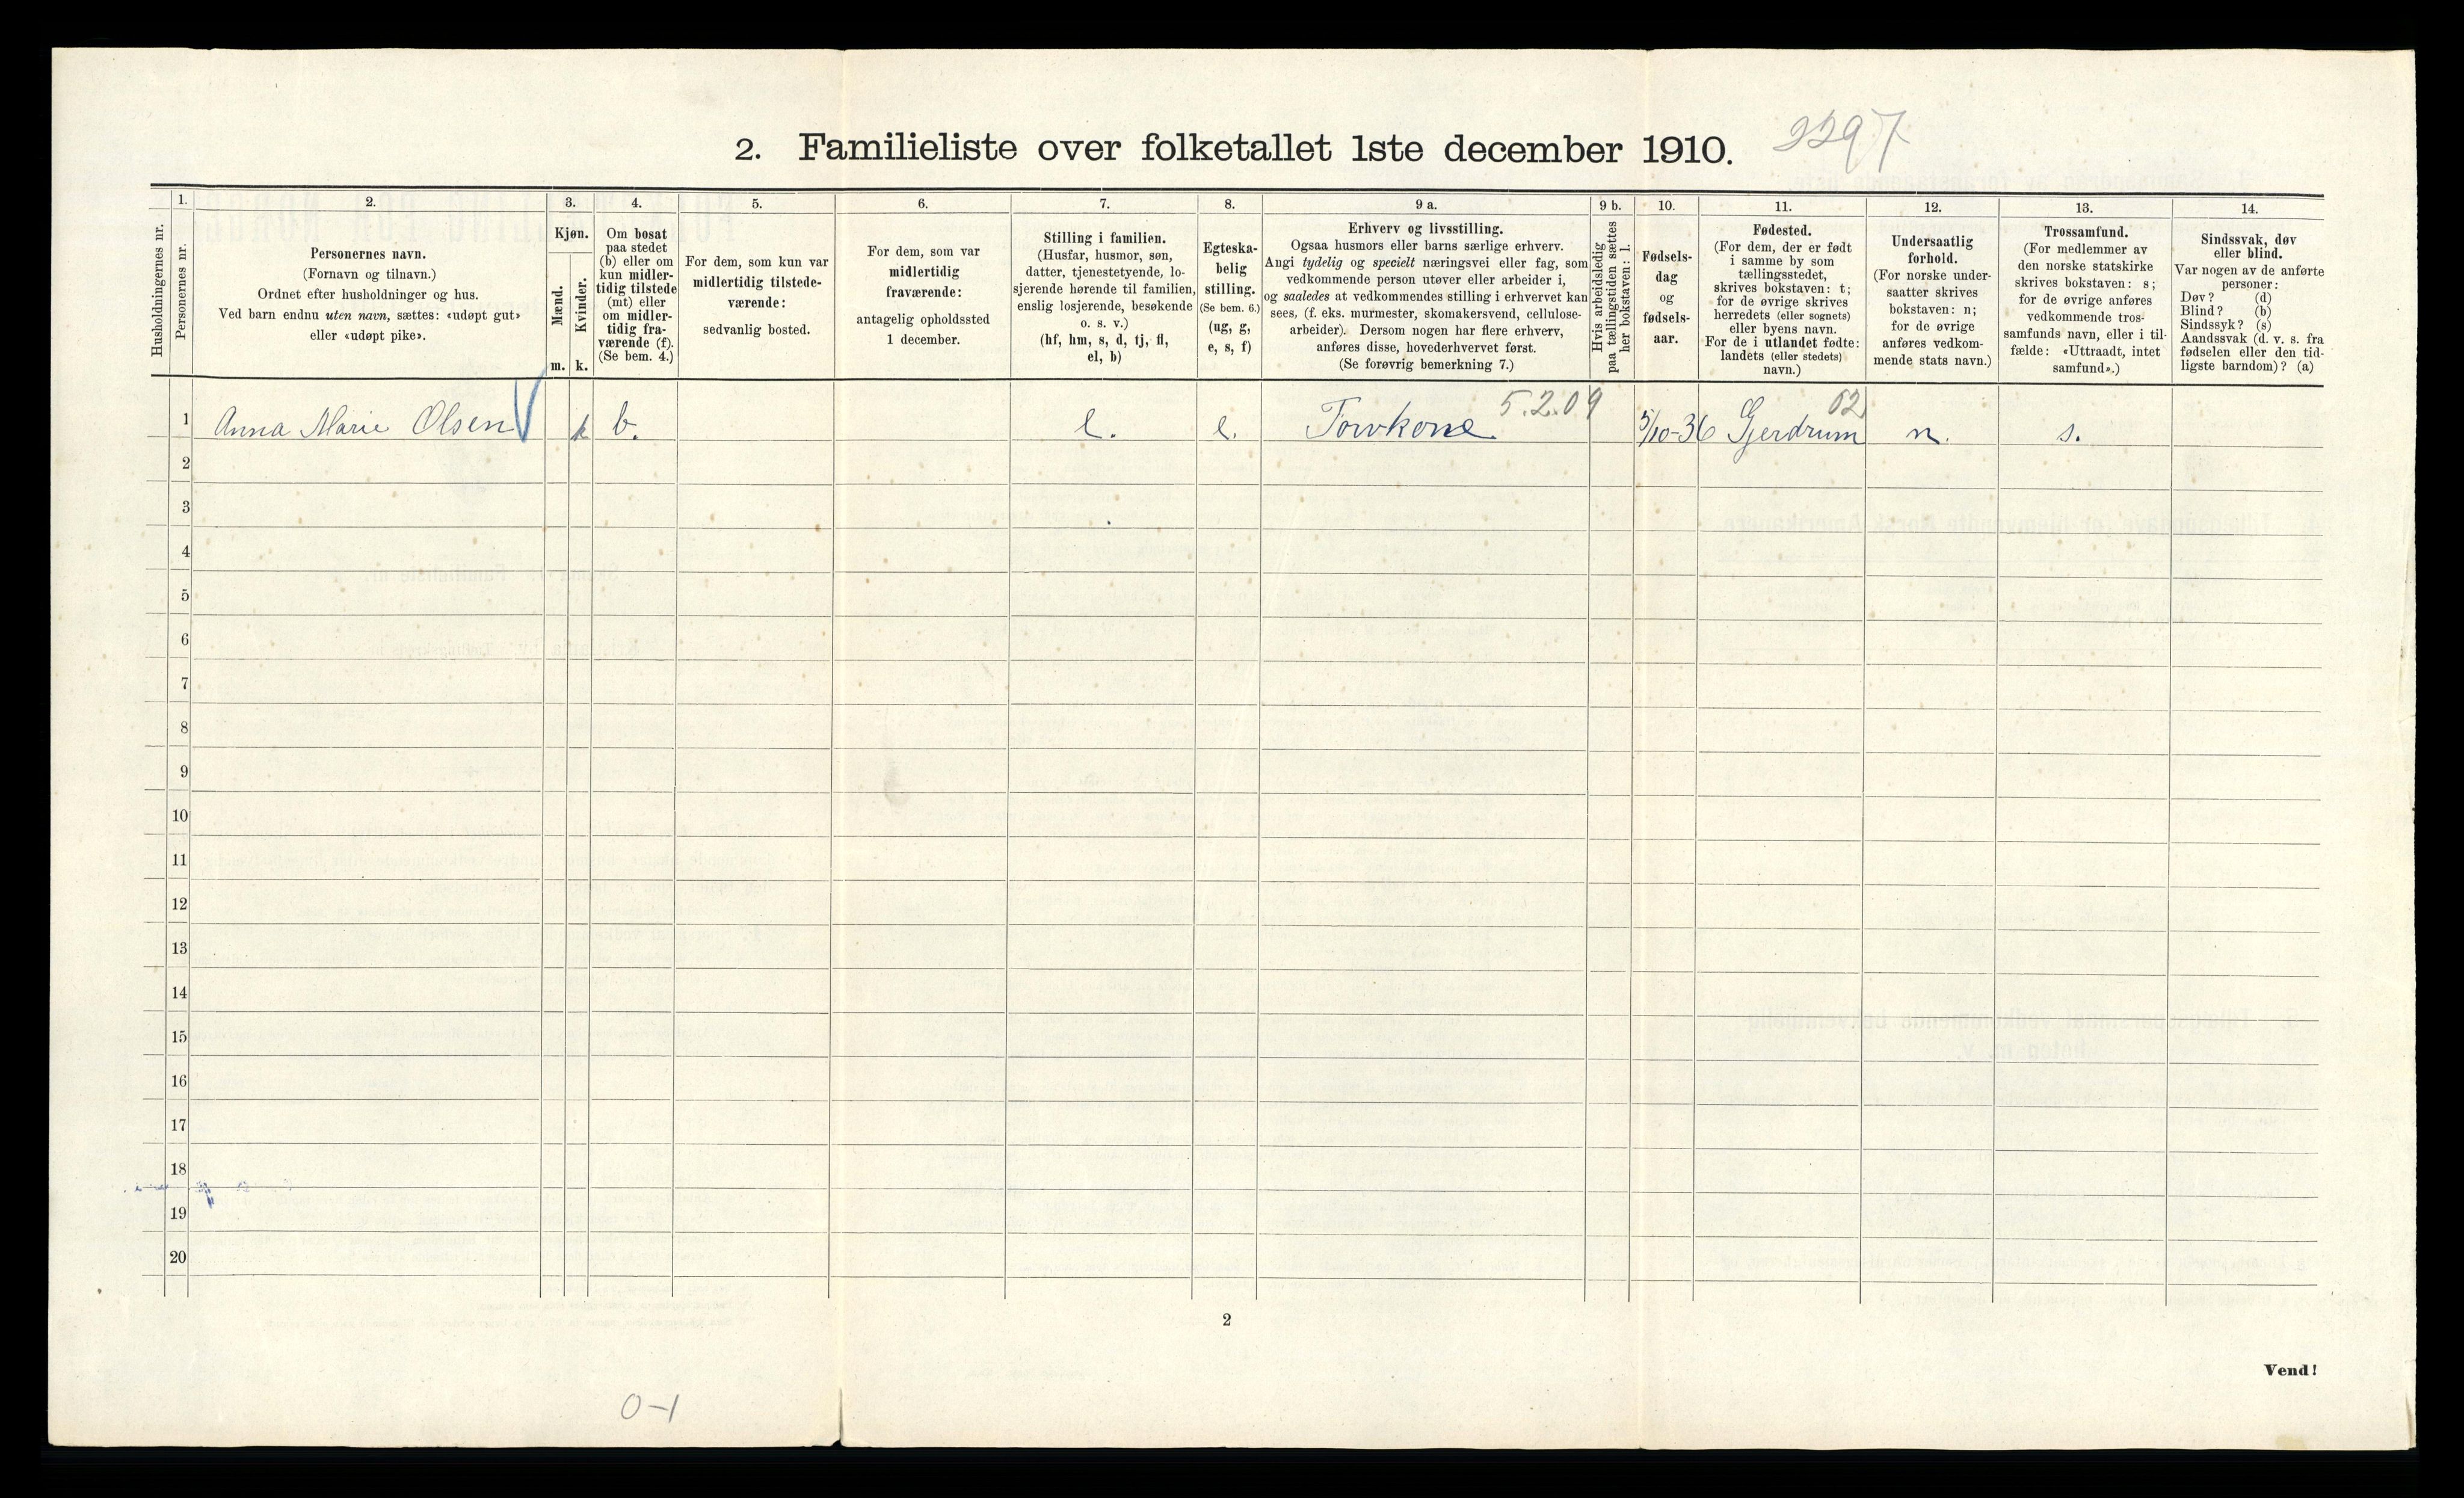 2. Familieliste over folketallet 1ste december 1910.
2297
Husholdningernes nr.
1.
Personernes nr.
2.
Personernes navn.
(Fornavn og tilnavn.)
Ordnet efter husholdninger og hus.
Ved barn endnu uten navn, sættes: «udøpt gut»
eller «udøpt pike».
3.
Kjøn.
Mænd.
m.
Kvinder.
k.
4.
Om bosat
paa stedet
(b) eller om
kun midler-
tidig tilstede
(mt) eller
om midler-
tidig fra-
værende (f).
(Se bem. 4.)
5.
For dem, som kun var
midlertidig tilstede-
værende:
sedvanlig bosted.
6.
For dem, som var
midlertidig
fraværende:
antagelig opholdssted
1 december.
7.
Stilling i familien.
(Husfar, husmor, søn,
datter, tjenestetyende, lo-
sjerende hørende til familien,
enslig losjerende, besøkende
o. s. v.)
(hf, hm, s, d, tj, fl,
el, b)
8.
Egteska-
belig
stilling.
(Se bem. 6.)
(ug, g,
e, s, f)
9 a.
Erhverv og livsstilling.
Ogsaa husmors eller barns særlige erhverv.
Angi tydelig og specielt næringsvei eller fag, som
vedkommende person utøver eller arbeider i,
og saaledes at vedkommendes stilling i erhvervet kan
sees, (f. eks. murmester, skomakersvend, cellulose-
arbeider). Dersom nogen har flere erhverv,
anføres disse, hovederhvervet først.
(Se forøvrig bemerkning 7.)
9 b.
Hvis arbeidsledig
paa tællingstiden sættes
her bokstaven: l.
10.
Fødsels-
dag
og
fødsels-
aar.
11.
Fødested.
(For dem, der er født
i samme by som
tællingsstedet,
skrives bokstaven: t;
for de øvrige skrives
herredets (eller sognets)
eller byens navn.
For de i utlandet fødte:
landets (eller stedets)
navn.)
12.
Undersaatlig
forhold.
(For norske under-
saatter skrives
bokstaven: n;
for de øvrige
anføres vedkom-
mende stats navn.)
13.
Trossamfund.
(For medlemmer av
den norske statskirke
skrives bokstaven: s;
for de øvrige anføres
vedkommende tros-
samfunds navn, eller i til-
fælde: «Uttraadt, intet
samfund».)
14.
Sindssvak, døv
eller blind.
Var nogen av de anførte
personer:
Døv? (d)
Blind? (b)
Sindssyk? (s)
Aandssvak (d. v. s. fra
fødselen eller den tid-
ligste barndom)? (a)
5.2.09 02
1 Anna Marie Olsen k b. l. e. Torvkone. 5/10-36 Gjerdrum n. s.
2
3
4
5
6
7
8
9
10
11
12
13
14
15
16
17
18
19
20
2
Vend!
0-1